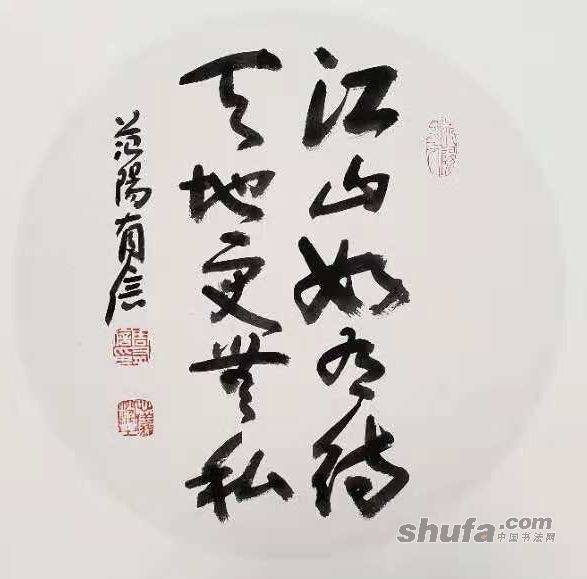 江山如有待
天地更無私
范陽有信
shufa.com
中国书法网